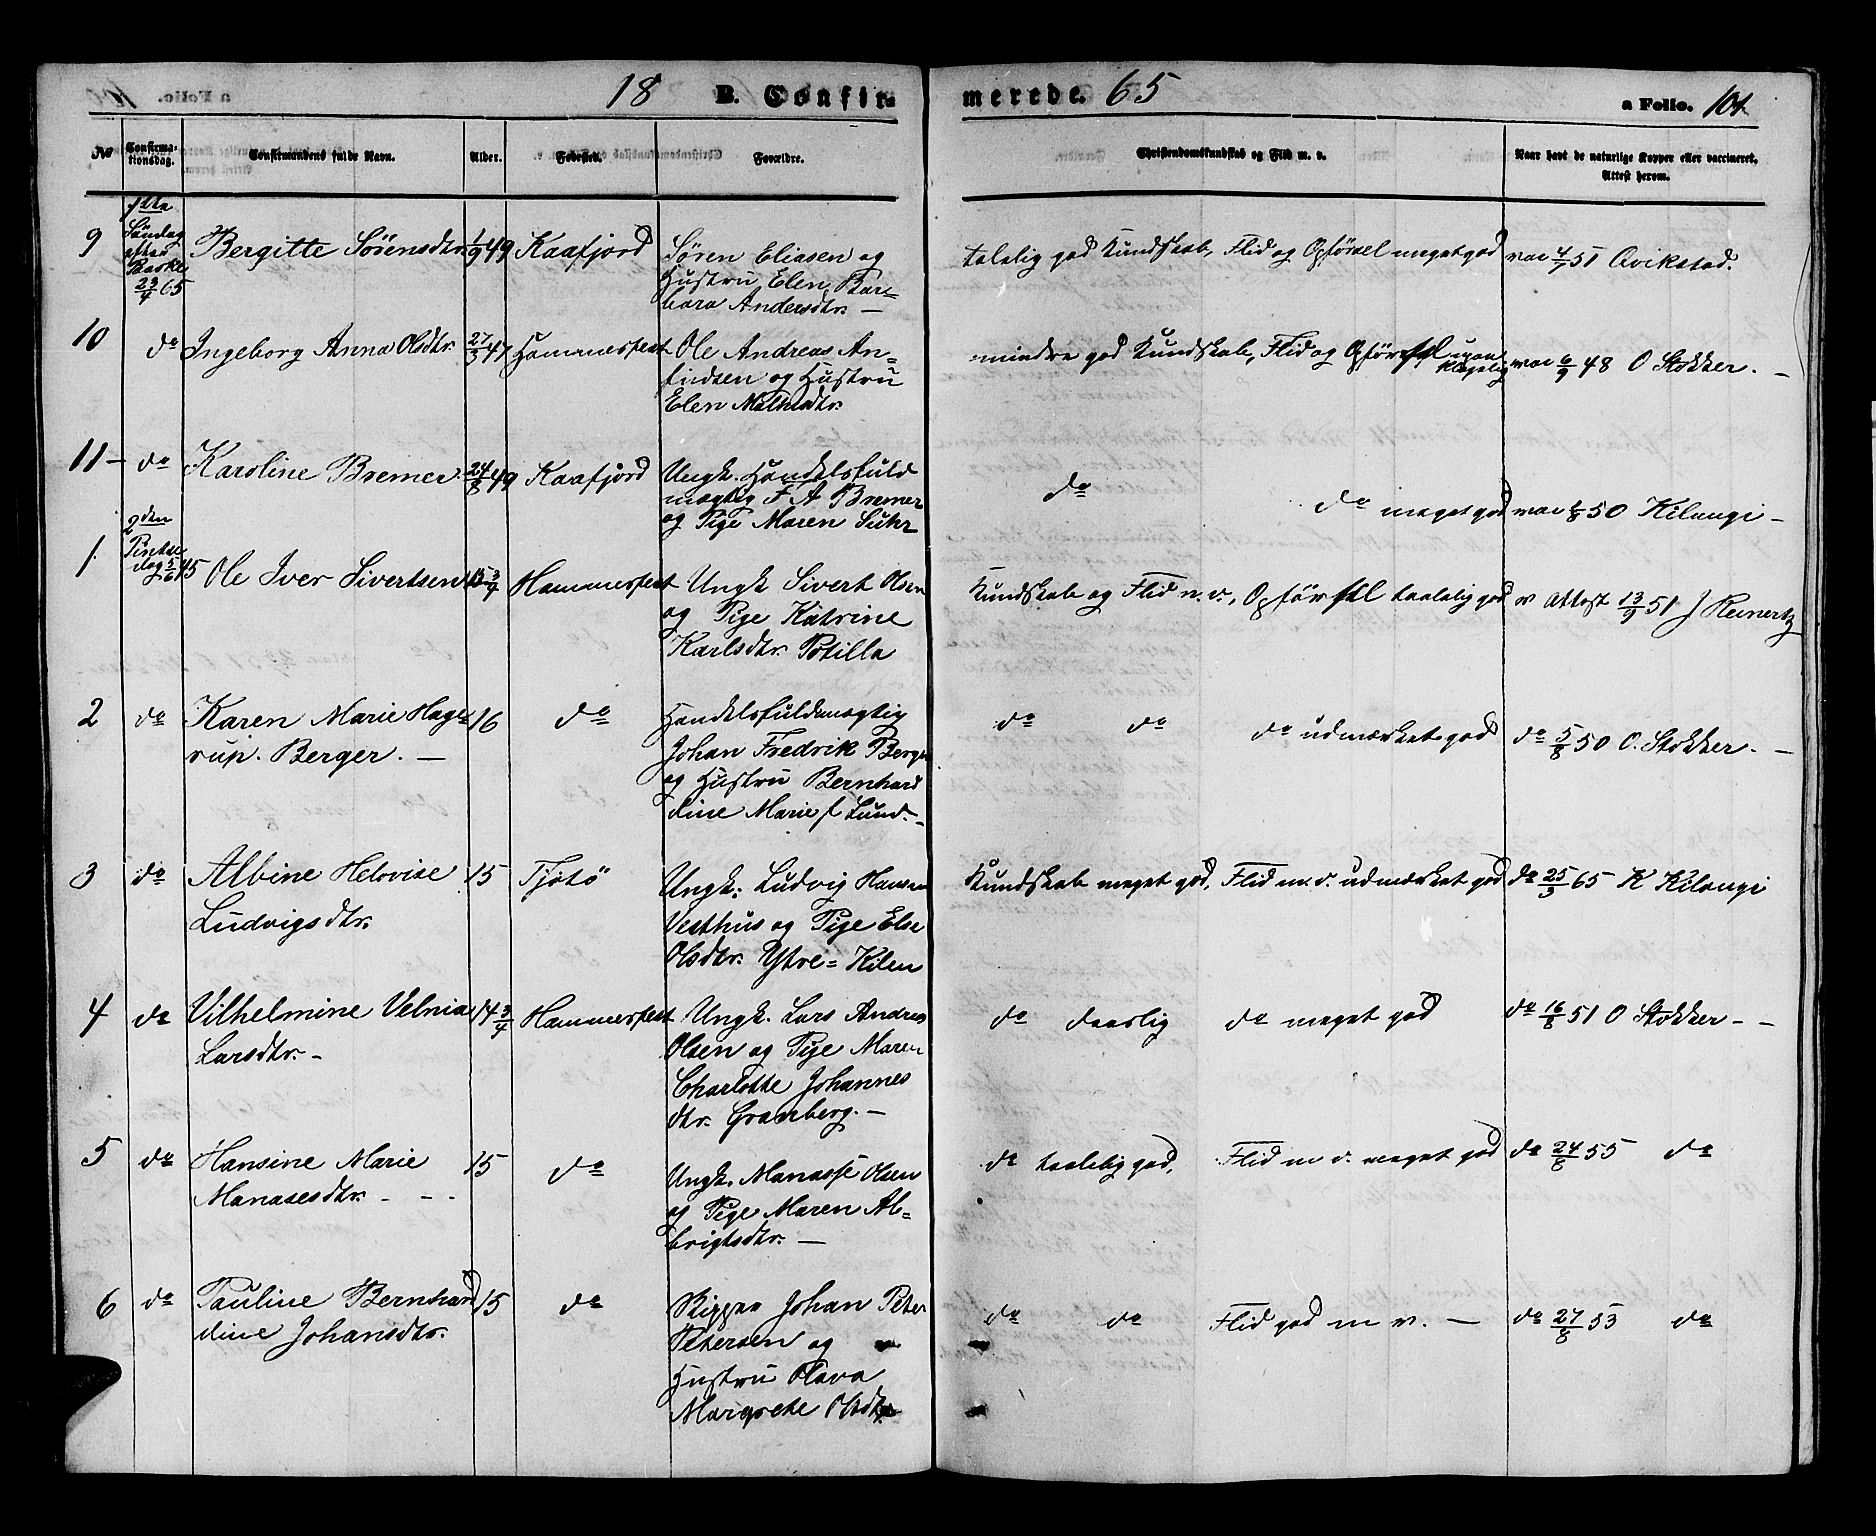 18 B. Confirmerede. 65 a Folio. 101.
No Confirmationsdag. Confirmandens fulde Navn. Alder. Fødested. Forældre. Christendomskundskab og Flid m. v. Naar havt de naturlige Kopper eller vaccineret, Attest herom.
9 1ste Søndag efter Paaske 23/4 65 Bergitte Sørensdtr. 1/9 49 Kaafjord Søren Eliasen og talelig god Kundskab, Flid og Opførsel meget god vac 4/7 51
Hustru Elen Bar=
bara Andersdtr. —
10 do Ingeborg Anna Olsdtr. 27/3 47 Hammerfest Ole Andreas An= mindre god Kundskab, Flid og Opførsel vac 6/9 48 O Stokker. —
findsen og Hustru
Elen Mathisdtr.
11 — do Karoline Bremer. 24/8 49 Kaafjord Ungk. Handelsfuld do do meget god vac 50 Kilangi —
mægtig F A Bremer
og Pige Maren Suhr
1 2den Pintsedag 5/6 Ole Iver Sivertsen 15 3/4 Hammerfest Ungk Sivert Olsen Kundskab og Flid m. v., Opførsel taalelig god v Attest 13/9 51 J Reinertz
og Pige Katrine
Karlsdtr. Potilla
2 do Karen Marie Hage= 16 do Handelsfuldmægtig do do do udmærket god do 5/8 50 O. Stokker. —
rup. Berger. — Johan Fredrik Berger
og Hustru Bernhard
dine Marie f Lund. —
3 do Albine Helovise 15 Tjøtø Ungk. Ludvig Hansen Kundskab meget god, Flid m. v. udmærket god do 25/3 65 K Kilangi
Ludvigsdtr. Vesthus og Pige Else
Olsdtr. Ytre= Kilen
4 do Vilhelmine Velnia 14 3/4 Hammerfest Ungk. Lars Andreas do daarlig do meget god do 16/8 51 O Stokker — —
Larsdtr. — Olsen og Pige Maren
Charlotte Johannes
dtr. Granberg. —
5 do Hansine Marie 15 do Ungk. Manasse Olsen do taalelig god, Flid m v. meget god do 24/8 55 do
Manasesdtr. - - - og Pige Maren Al=
brigtsdtr. —
6 do Pauline Bernhard 15 do Skipper Johan Peter do do Flid god m v. — do 27/8 53 do
dine Johansdtr. Petersen og
Hustru Olava
Margrete Olsdtr